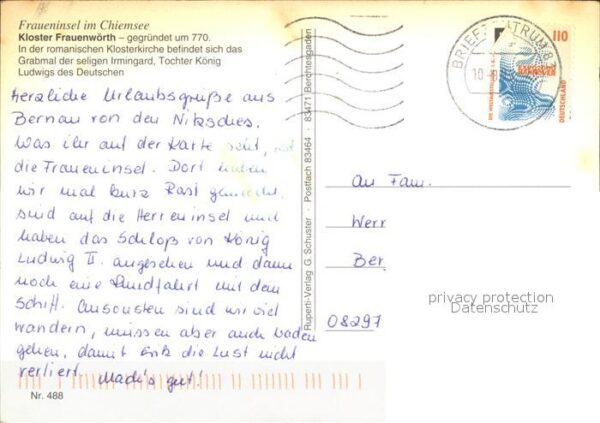 Fraueninsel im Chiemsee
Kloster Frauenwörth – gegründet um 770.
In der romanischen Klosterkirche befindet sich das
Grabmal der seligen Irmingard, Tochter König
Ludwigs des Deutschen
Herzliche Urlaubsgrüße aus
Bernau von den Nitzsches.
Was ihr auf der Karte seht, ist
die Fraueninsel. Dort haben
wir mal kurz Rast gemacht,
sind auf die Herreninsel und
haben das Schloß von König
Ludwig II. angesehen und dann
noch eine Rundfahrt mit dem
Schiff. Ansonsten sind wir viel
wandern, müssen aber auch baden
gehen, damit die Lust nicht
verliert. Mach's gut!
Nr. 488
Ruperti-Verlag G. Schuster · Postfach 83464 · 83471 Berchtesgaden
BRIEFZENTRUM 83
10
110
DEUTSCHLAND
HANNOVER
An Fam.
Werr
Ber
08297
privacy protection
Datenschutz